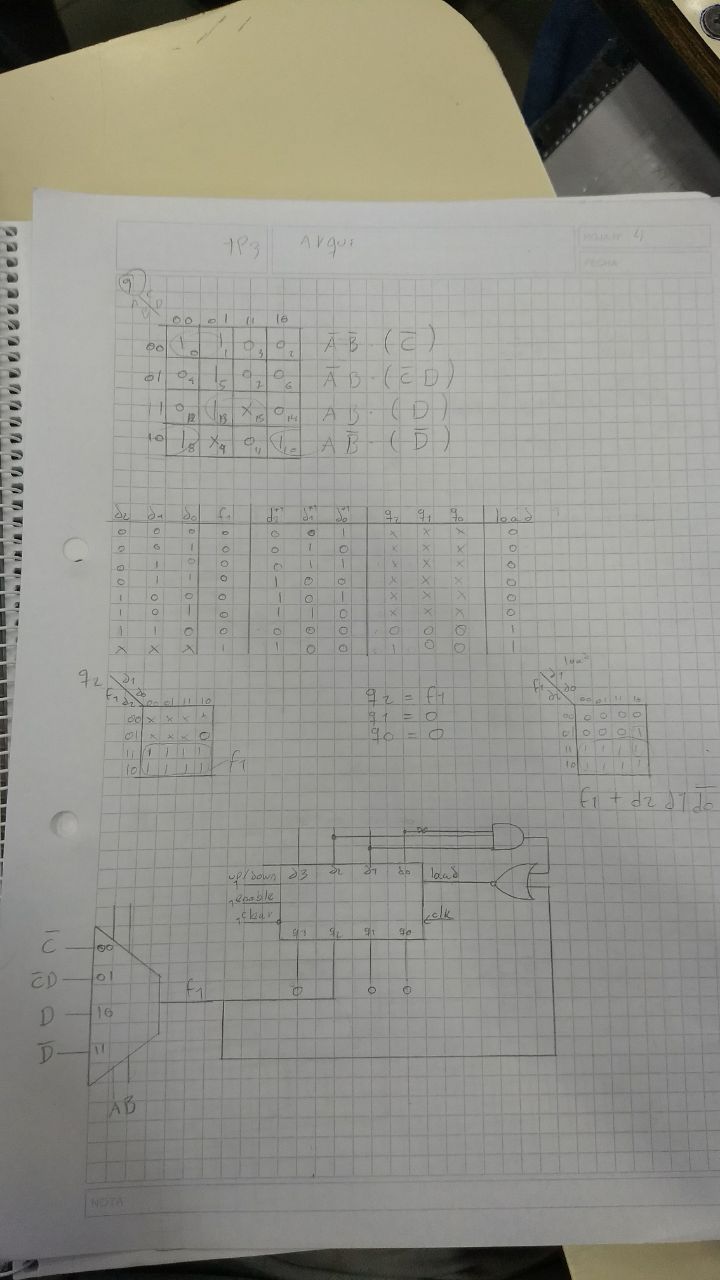 TP3 Arqui HOJA Nº 4
FECHA
9
C
A B D
00 01 11 10
00 1 0 1 1 0 3 0 2 A̅ B̅ · ( C̅ )
01 0 4 1 5 0 7 0 6 A̅ B · ( C̅ D )
11 0 12 1 13 X 15 0 14 A B · ( D )
10 1 8 X 9 0 11 1 10 A B̅ · ( D̅ )
d2 d1 d0 f1 d2+1 d1+1 d0+1 q2 q1 q0 load
0 0 0 0 0 0 1 x x x 0
0 0 1 0 0 1 0 x x x 0
0 1 0 0 0 1 1 x x x 0
0 1 1 0 1 0 0 x x x 0
1 0 0 0 1 0 1 x x x 0
1 0 1 0 1 1 0 x x x 0
1 1 0 0 0 0 0 0 0 0 1
x x x 1 1 0 0 1 0 0 1
q2
d1
f1 d2 d0 00 01 11 10
00 x x x x
01 x x x 0
11 1 1 1 1
10 1 1 1 1 f1
q2 = f1
q1 = 0
q0 = 0
load
d1
f1 d2 d0 00 01 11 10
00 0 0 0 0
01 0 0 0 1
11 1 1 1 1
10 1 1 1 1
f1 + d2 d1 d̅0̅
up/down d3 d2 d1 d0 load
enable
clear clk
q3 q2 q1 q0
0 0 0
C̅ 00
C̅D 01
D 10
D̅ 11
f1
AB
NOTA